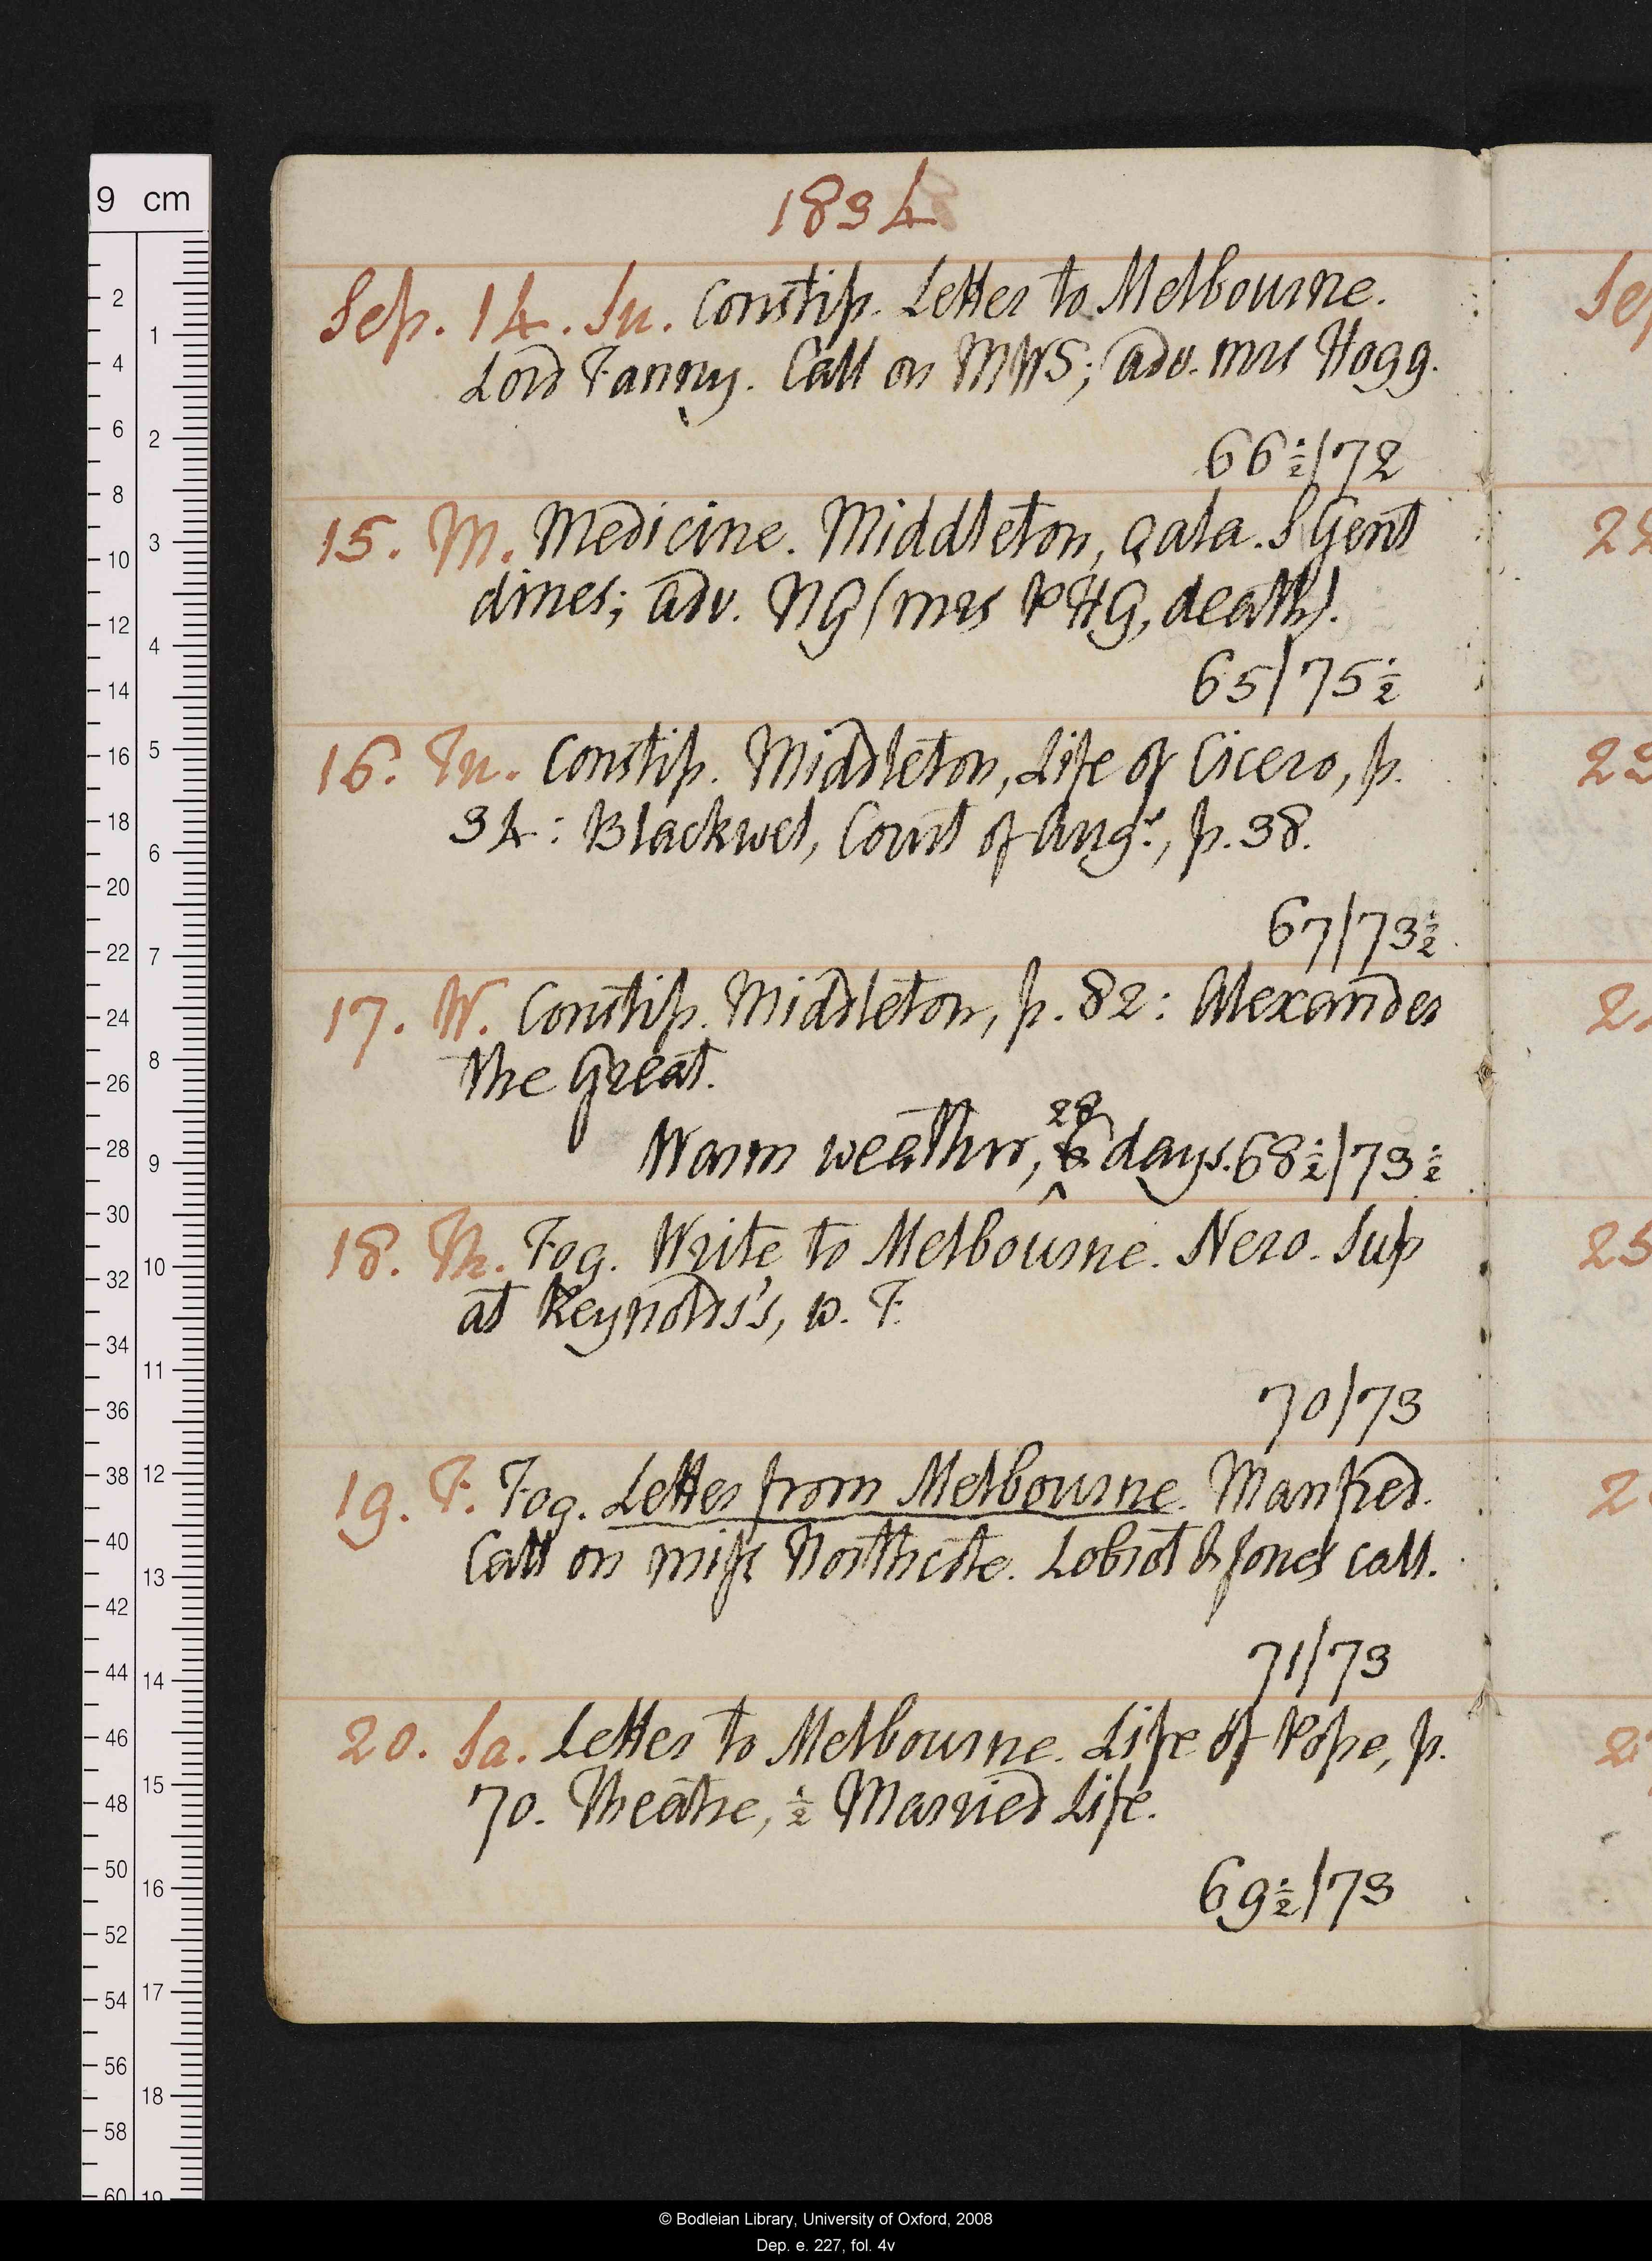 1834
Sep. 14. Su. Constip. Letter to Melbourne.
Lord Fanny. Call on MWS; adv. mrs Hogg.
66½/72
15. M. Medicine. Middleton, çala. S Gent
dines; adv. NG (mrs PHG, death).
65/75½
16. Tu. Constip. Middleton, Life of Cicero, p.
34: Blackwel, Court of Augs, p. 38.
67/73½
17. W. Constip. Middleton, p. 82: Alexander
the Great.
28
Warm weather, days. 68½/73½
18. Th. Fog. Write to Melbourne. Nero. Sup
at Reynolds's, w. F.
70/73
19. F. Fog. Letter from Melbourne. Manfred.
Call on miss Northcote. Lobrot & Jones call.
71/73
20. Sa. Letter to Melbourne. Life of Pope, p.
70. Theatre, ½ Married Life.
69½/73
Sep
9 cm
© Bodleian Library, University of Oxford, 2008
Dep. e. 227, fol. 4v